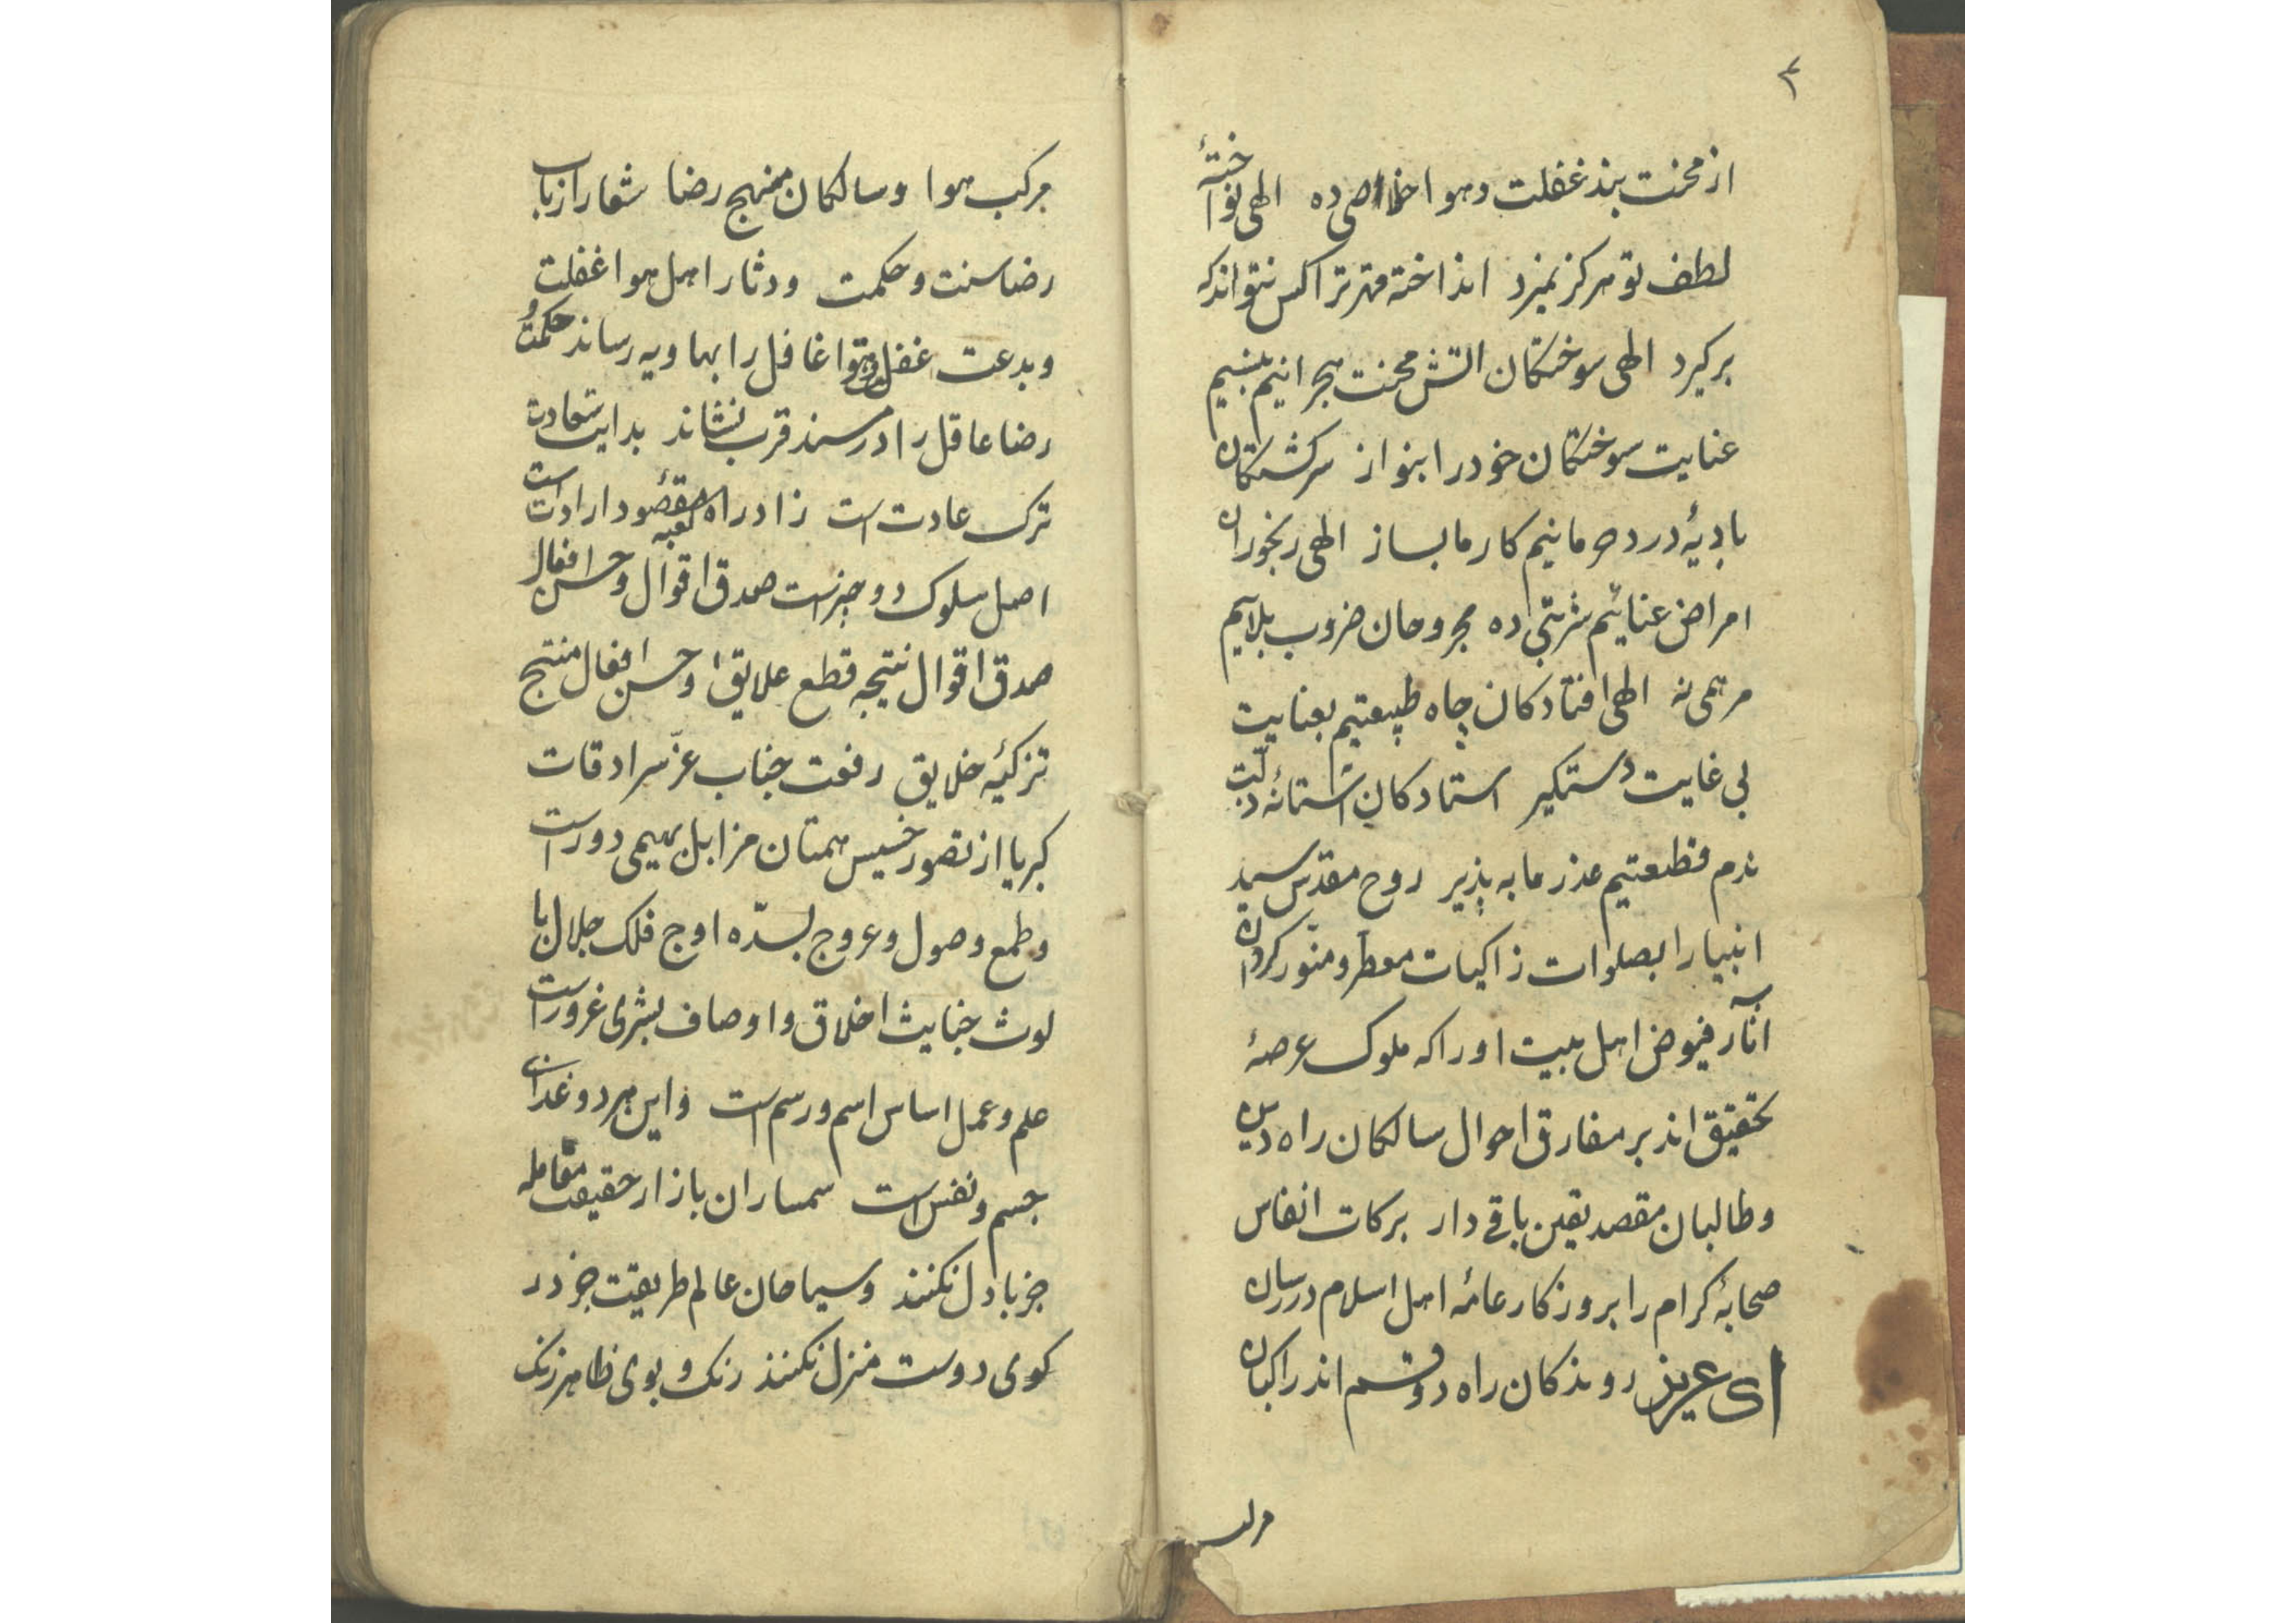 ۴
از محنت بند غفلت و هوا خلاصی ده الهی نواختهٔ
لطف تو هرکز نمیرد انداخته قهر ترا کس نتواند که
برکیرد الهی سوختکان اتش محنت هجرانیم بنسیم
عنایت سوختکان خود را بنواز سرکشتکان
بادیهٔ درد حرمانیم کار ما بساز الهی رنجوران
امراض عنائیم شربتی ده مجروحان ضروب بلاییم
مرهمی نه الهی افتادکان چاه طبیعتیم بعنایت
بی غایت دستکیر استادکان آستانهٔ
ندم قطیعتیم عذر ما به پذیر روح مقدّس سید
انبیا را بصلوات زاکیات معطر و منوّر کردان
آثار فیوض اهل بیت او را که ملوک عرصهٔ
تحقیق اند بر مفارق احوال سالکان راه دین
و طالبان مقصد یقین باقی دار برکات انفاس
صحابهٔ کرام را بروزکار عامهٔ اهل اسلام در رسان
ای عزیز روندکان راه دو قسم اند راکبان
مرکب
مرکب هوا و سالکان منهج رضا شعار ارباب
رضا سنت و حکمت و دثار اهل هوا غفلت
و بدعت غفل و هوا غافل را بهاویه رساند حکمت و
رضا عاقل را در مسند قرب نشاند بدایت سعادت
ترک عادت است زاد راه کعبه مقصود ارادت است
اصل سلوک دو چیزست صدق اقوال و حسن افعال
صدق اقوال نتیجه قطع علایق و حسن افعال منتج
تزکیهٔ خلایق رفعت جناب عزّ سرادقات
کبریا از تصور خسیس همتان مزابل بهیمی دورست
و طمع وصول و عروج بسدّه اوج فلک جلال با
لوث جنایث اخلاق و اوصاف بشری غرورست
علم و عمل اساس اسم و رسم است و این هر دو غذای
جسم و نفس است سمساران بازار حقیقت معامله
جز با دل نکنند و سیاحان عالم طریقت جز در
کوی دوست منزل نکنند رنک و بوی ظاهر زنک